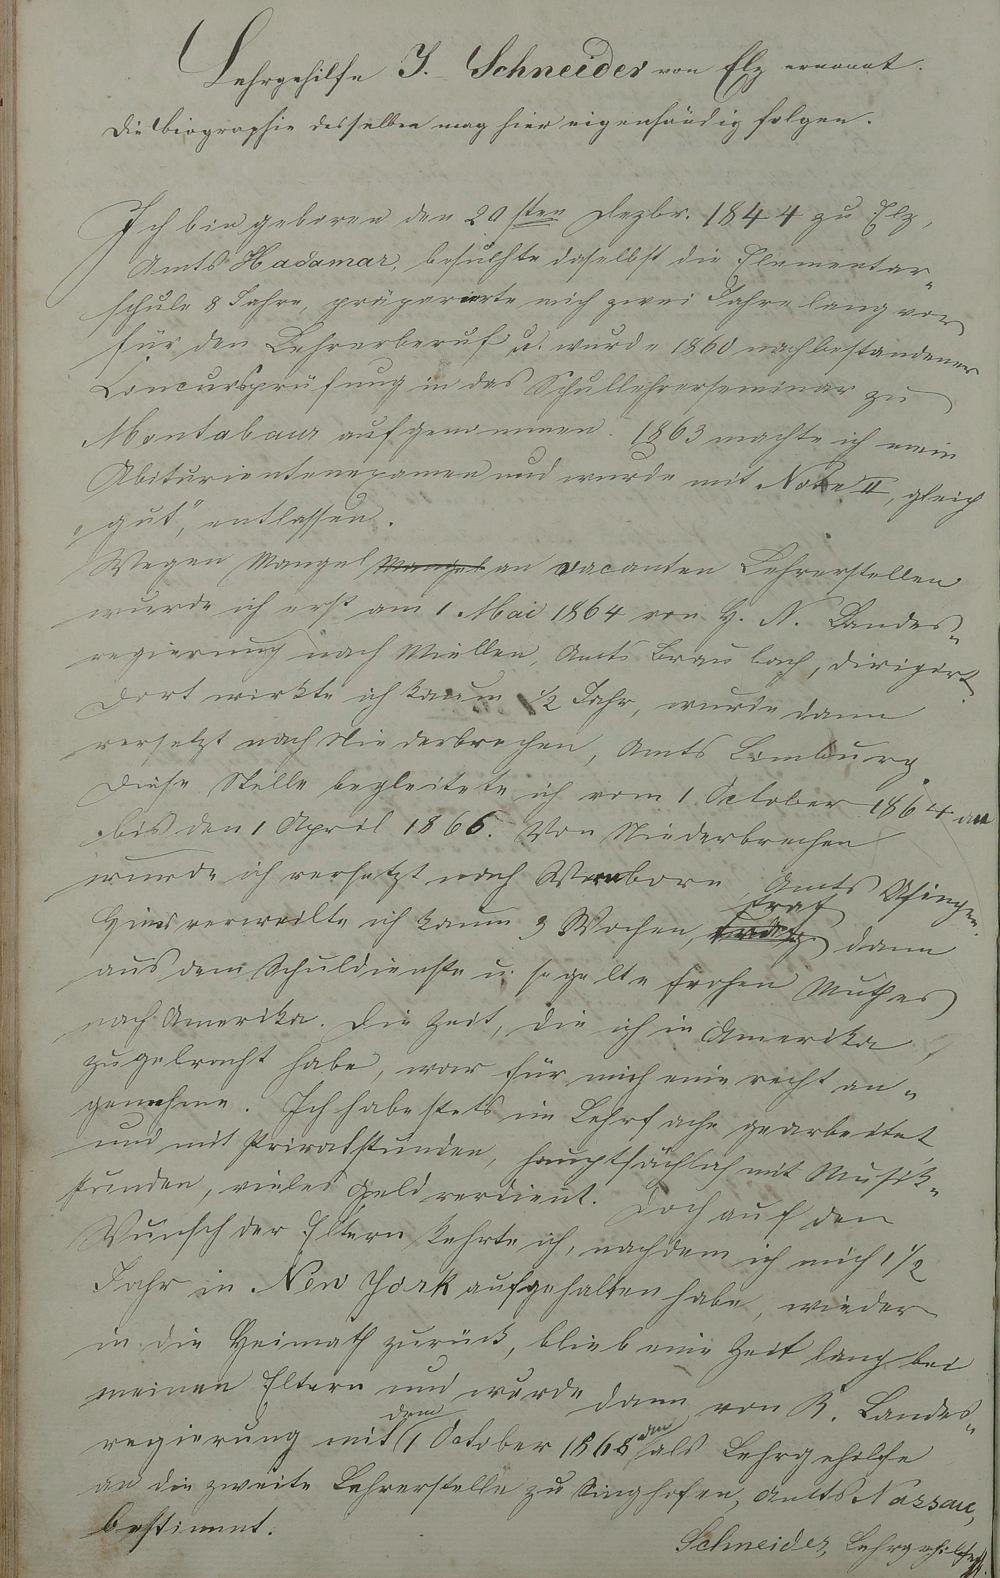 Lehrgehilfe J. Schneider von Elz ernannt.
Die Biographie desselben mag hier eigenhändig folgen.
Ich bin geboren den 20sten Dezbr. 1844 zu Elz,
Amts Hadamar, besuchte daselbst die Elementar„
schule 8 Jahre, präparirte mich zwei Jahre lang vor
für den Lehrerberuf u. wurde 1860 nach bestandener
Concursprüfung in das Schullehrerseminar zu
Montabaur aufgenommen. 1863 machte ich mein
Abiturientenexamen und wurde mit Note II, gleich
„gut“, entlassen.
Wegen Mangel Mangel an vacanten Lehrerstellen
wurde ich erst am 1 Mai 1864 von H. N. Landes„
regierung nach Miellen, Amts Braubach, dirigirt.
Dort wirkte ich kaum 1/2 Jahr, wurde dann
versetzt nach Niederbrechen, Amts Limburg.
Diese Stelle begleitete ich vom 1 October 1864 an
bis den 1 April 1866. Von Niederbrechen
wurde ich versetzt nach Wernborn, Amts Usingen.
Hier verweilte ich kaum 3 Wochen, trat dann
aus dem Schuldienste u. segelte frohen Muthes
nach Amerika. Die Zeit, die ich in Amerika
zugebracht habe, war für mich eine recht an„
genehme. Ich habe stets im Lehrfache gearbeitet
und mit Privatstunden, hauptsächlich mit Musik„
stunden, vieles Geld verdient. Doch auf den
Wunsch der Eltern kehrte ich, nachdem ich mich 1 1/2
Jahr in New York aufgehalten habe, wieder
in die Heimath zurück, blieb eine Zeit lang bei
meinen Eltern und wurde dann von K. Landes„
regierung mit dem 1 October 1868 an als Lehrgehilfe
an die zweite Lehrerstelle zu Singhofen, Amts Nassau,
bestimmt.
Schneider, Lehrgehilfe.